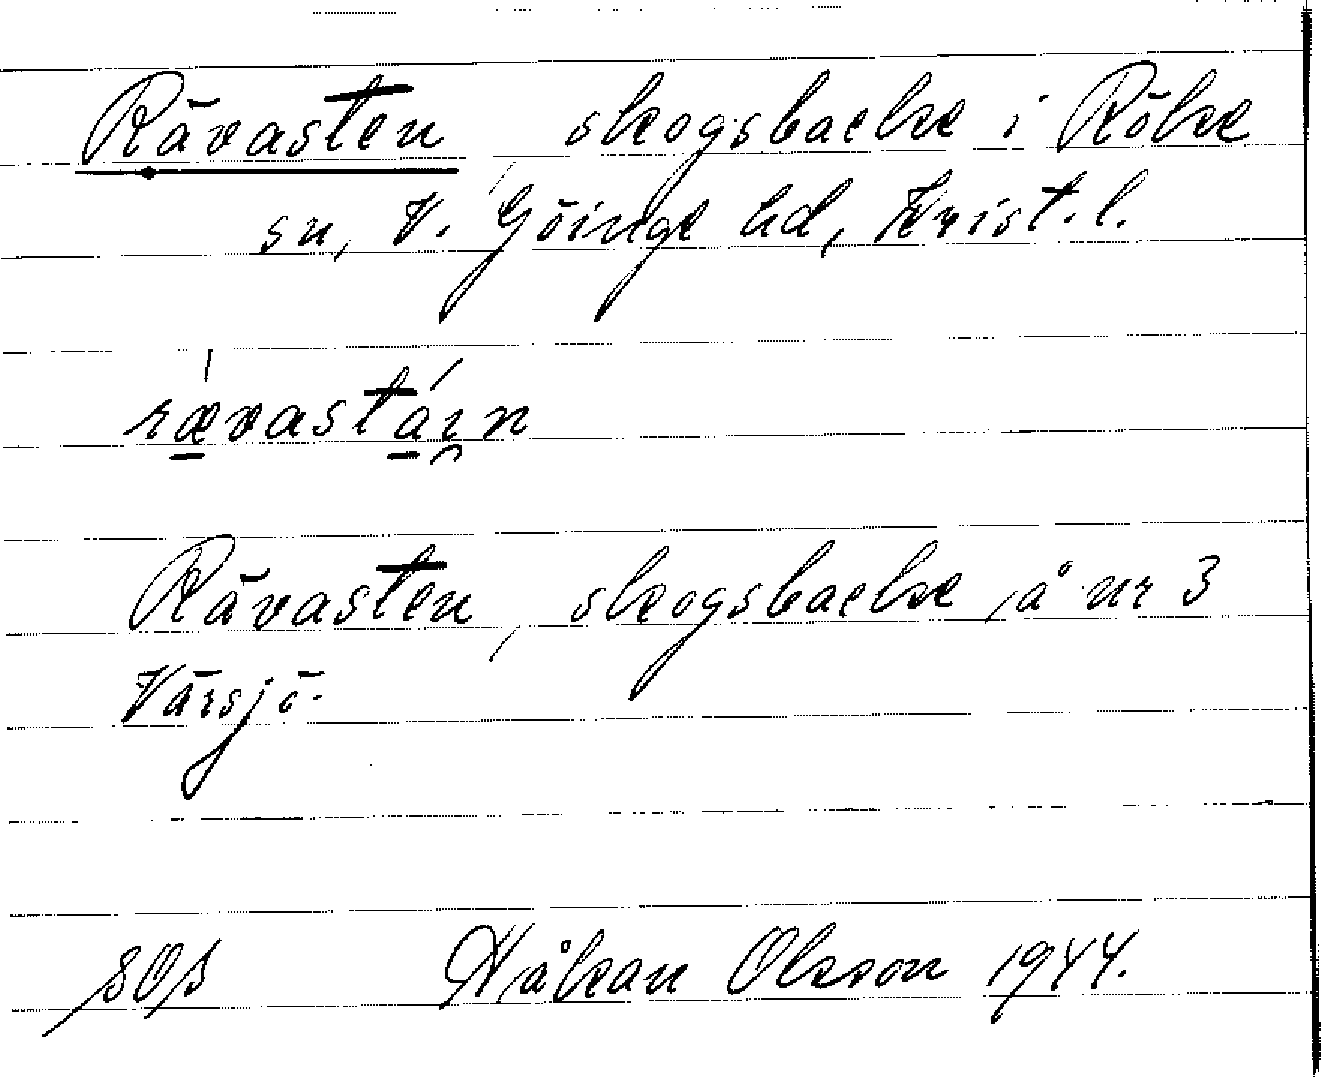 Rävasten skogsbacke i Röke
sn, V. Göinge hd, Krist. l.
rævastäin
Rävasten, skogsbacke, å nr 3
Värsjö.
Håkan Olsson 1944.